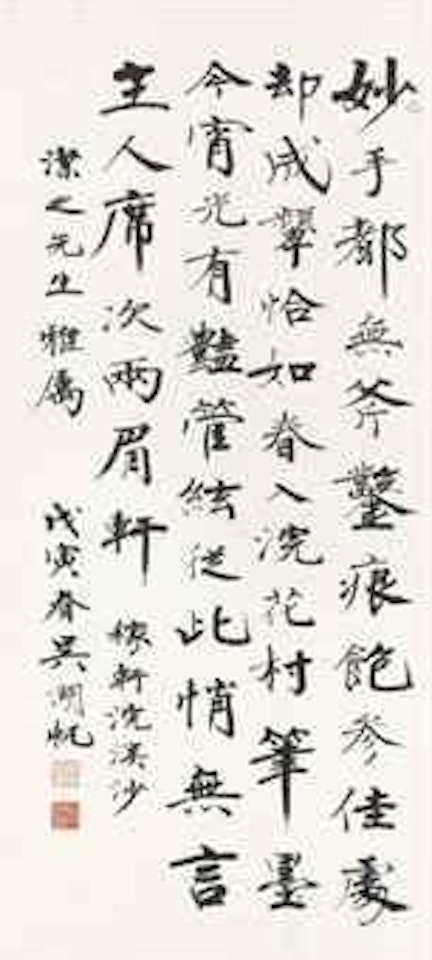 妙手都無斧鑿痕飽參佳處
却成顰恰如春入浣花村筆墨
今宵光有豔管絃從此悄無言
主人席次兩眉軒 稼軒浣溪沙
潔之先生雅屬 戊寅春吳湖帆